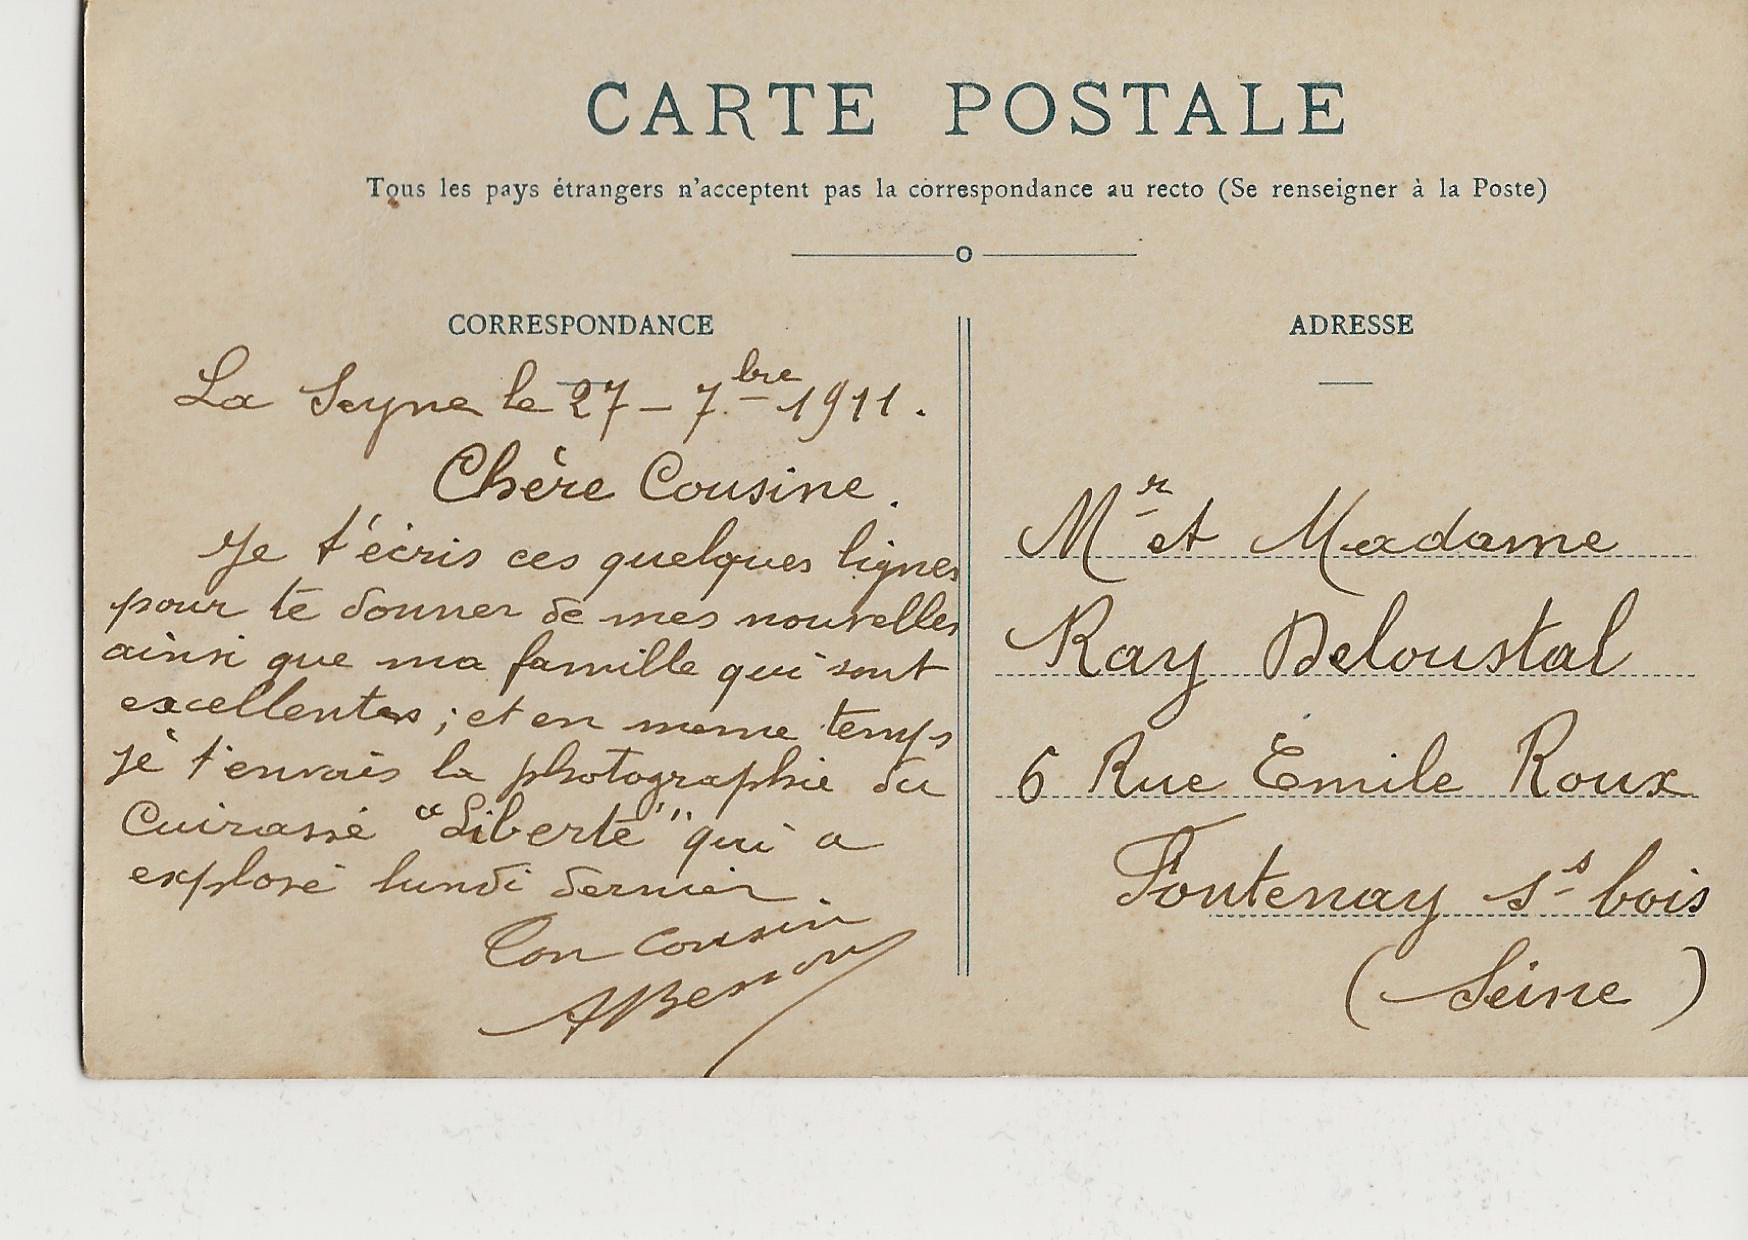 CARTE POSTALE
Tous les pays étrangers n'acceptent pas la correspondance au recto (Se renseigner à la Poste)
CORRESPONDANCE
La Seyne le 27 - 7bre 1911.
Chère Cousine.
Je t'écris ces quelques lignes
pour te donner de mes nouvelles
ainsi que ma famille qui sont
excellentes ; et en meme temps
je t'envois la photographie du
Cuirassé "Liberté" qui a
explosé lundi dernier
Ton cousin
ABesson
ADRESSE
Mr et Madame
Ray Deloustal
6 Rue Emile Roux
Fontenay ss bois
(Seine)